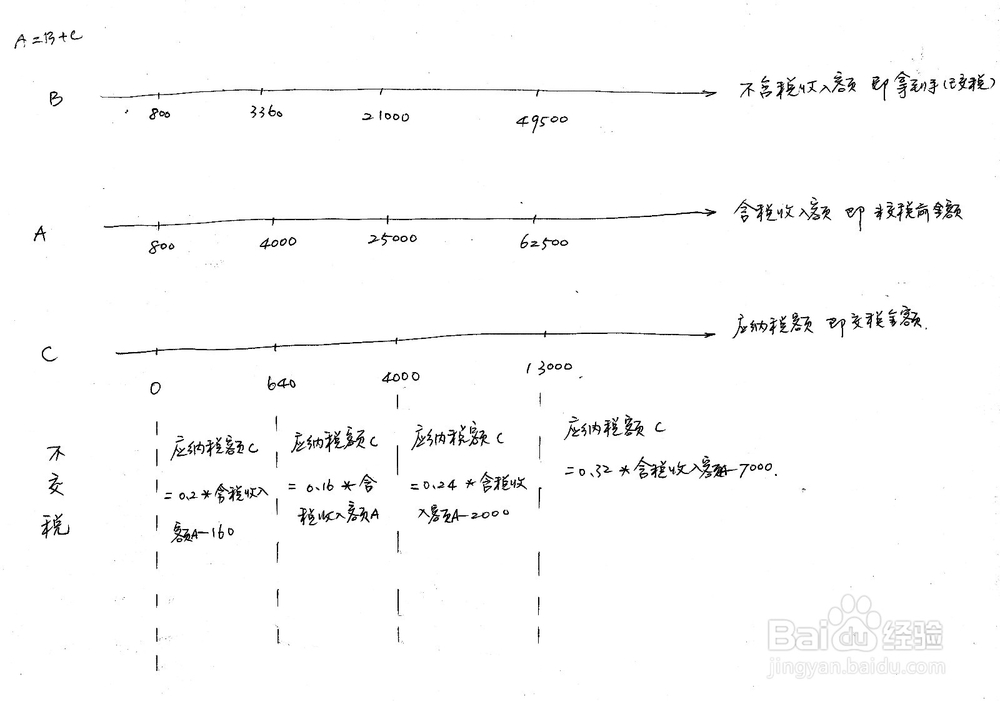 A=B+C
B
800
3360
21000
49500
不含税收入额 即拿到手(已交税)
A
800
4000
25000
62500
含税收入额 即未交税前金额
C
0
640
4000
13000
应纳税额 即交税金额.
不
交
税
应纳税额C
=0.2*含税收入
额A-160
应纳税额C
=0.16*含
税收入额A
应纳税额C
=0.24*含税收
入额A-2000
应纳税额C
=0.32*含税收入额A-7000.
Baidu经验
jingyan.baidu.com